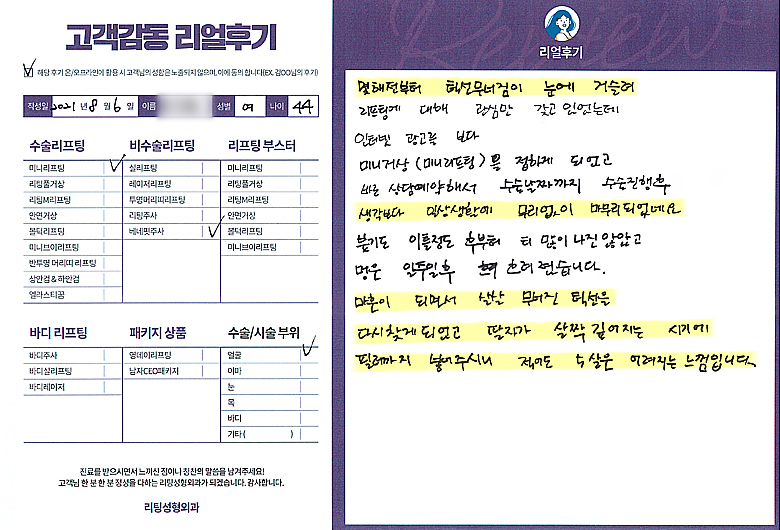 고객감동 리얼후기
해당 후기 온/오프라인에 활용 시 고객님의 성함은 노출되지 않으며, 이에 동의 합니다(EX. 김OO님의 후기)
작성일 2021 년 8 월 6 일 이름 성별 여 나이 44
수술리프팅
미니리프팅
리팅풀거상
리팅M리프팅
안면거상
볼턱리프팅
미니브이리프팅
반투명 머리띠 리프팅
상안검 & 하안검
엘라스티꿈
비수술리프팅
실리프팅
레이저리프팅
투명머리띠리프팅
리팅주사
베네핏주사
리프팅 부스터
미니리프팅
리팅풀거상
리팅M리프팅
안면거상
볼턱리프팅
미니브이리프팅
바디 리프팅
바디주사
바디실리프팅
바디레이저
패키지 상품
영데이리프팅
남자CEO패키지
수술/시술 부위
얼굴
이마
눈
목
바디
기타 ( )
진료를 받으시면서 느끼신 점이나 칭찬의 말씀을 남겨주세요!
고객님 한 분 한 분 정성을 다하는 리팅성형외과가 되겠습니다. 감사합니다.
리팅성형외과
Review
리얼후기
몇해전부터 턱선무너짐이 눈에 거슬려
리프팅에 대해 관심만 갖고 있었는데
인터넷 광고를 보다
미니거상 (미니리프팅)을 접하게 되었고
바로 상담예약해서 수술날짜까지 수술진행후
생각보다 일상생활에 무리없이 마무리되었네요
붓기도 이틀정도 후부터 더 많이 나진 않았고
멍은 일주일후 흐려졌습니다.
마흔이 되면서 살살 무너진 턱선을
다시찾게되었고 팔자가 살짝 깊어지는 시기에
필러까지 넣어주시니 적어도 5살은 어려지는 느낌입니다.